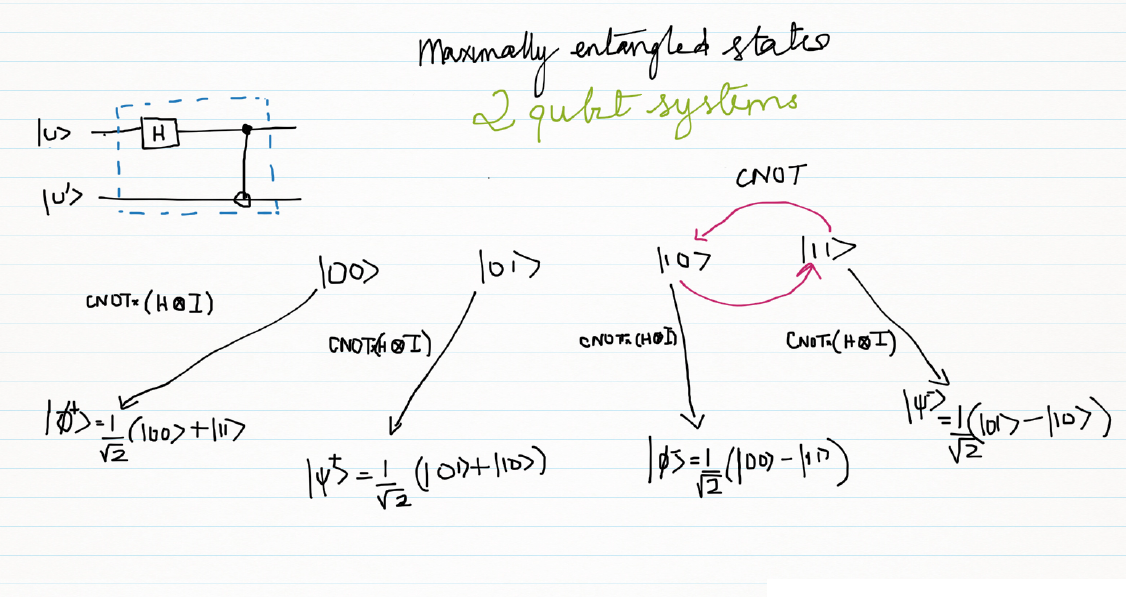 Maximally entangled states
2 qubit systems
|u> H
|u'>
CNOT
|00> |01> |10> |11>
CNOT*(H⊗I) CNOT*(H⊗I) CNOT*(H⊗I) CNOT*(H⊗I)
|ϕ⁺>=1/√2(|00>+|11>
|ψ⁺>=1/√2(|01>+|10>)
|ϕ⁻>=1/√2(|00>-|11>)
|ψ⁻>=1/√2(|01>-|10>)